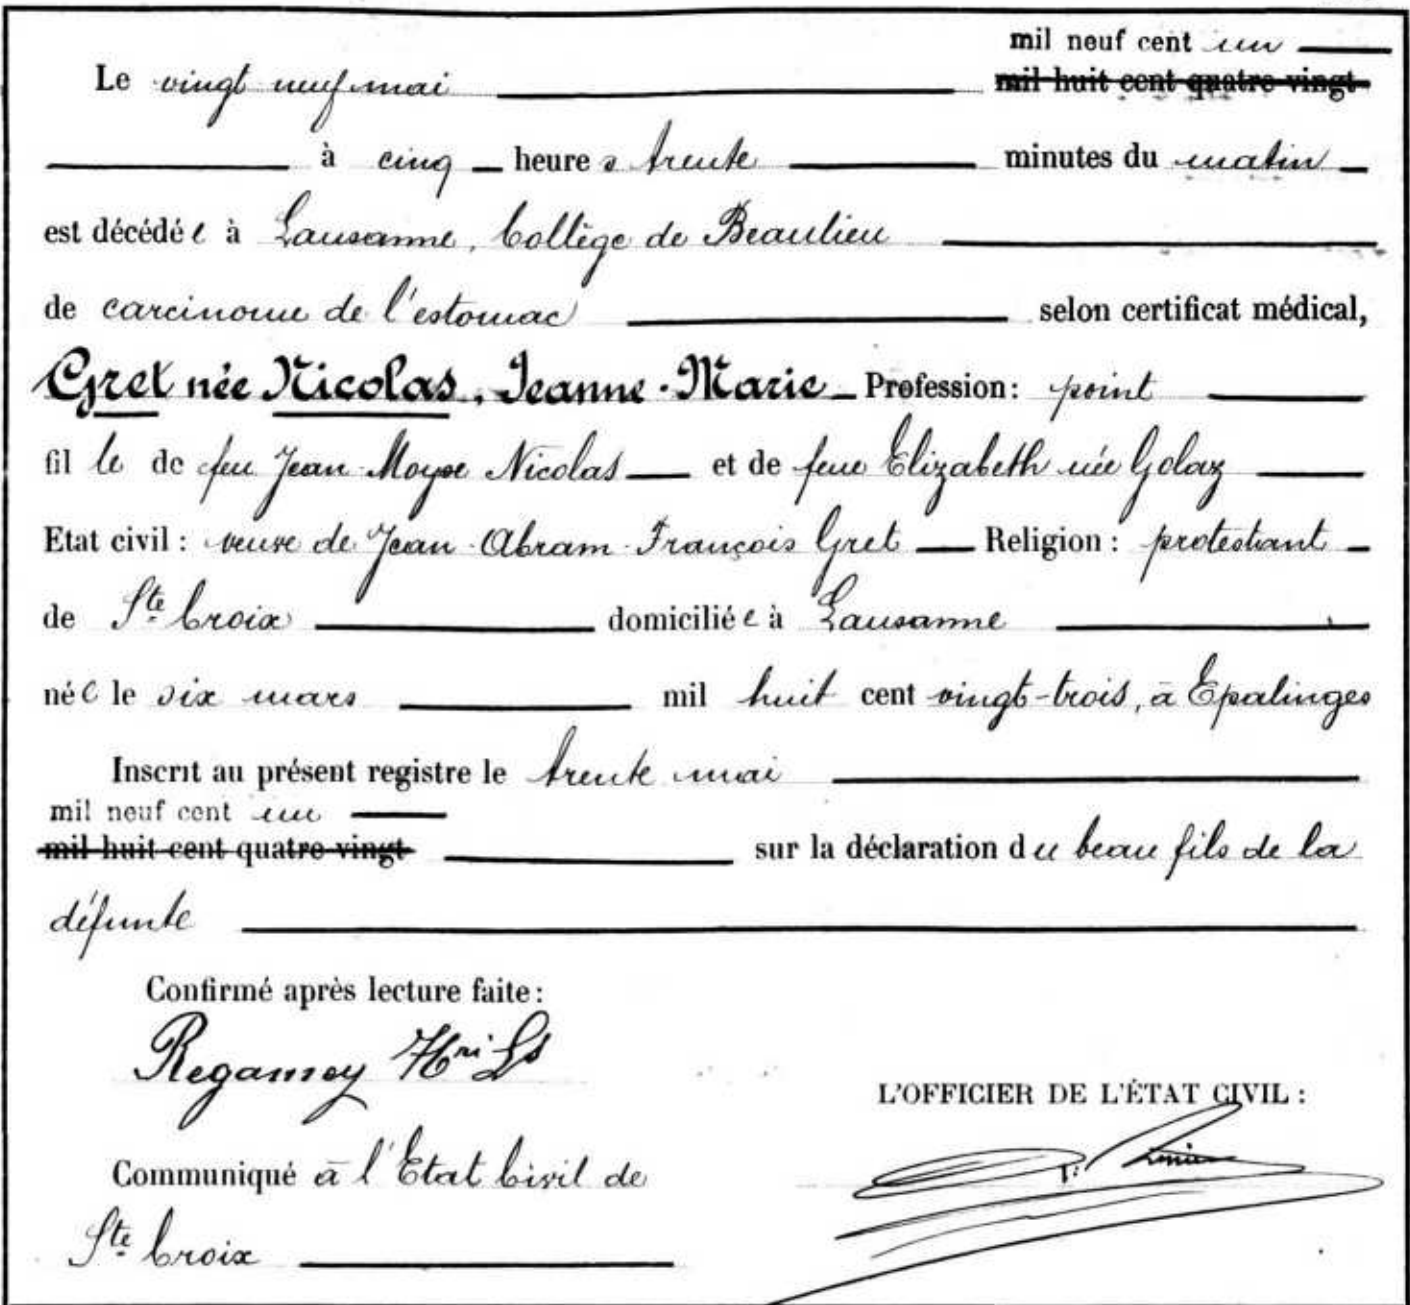 mil neuf cent un
Le vingt neuf mai mil huit cent quatre vingt
à cinq heures trente minutes du matin
est décédée à Lausanne, Collège de Beaulieu
de carcinome de l'estomac selon certificat médical,
Gret née Nicolas, Jeanne-Marie Profession: point
fille de feu Jean Moyse Nicolas et de feue Elizabeth née Golaz
Etat civil : veuve de Jean-Abram-François Gret Religion : protestant
de Ste Croix domiciliée à Lausanne
née le six mars mil huit cent vingt-trois, à Epalinges
Inscrit au présent registre le trente mai
mil neuf cent un
mil huit cent quatre vingt sur la déclaration du beau fils de la
défunte
Confirmé après lecture faite :
Regamey Hri Ls
L'OFFICIER DE L'ÉTAT CIVIL :
Communiqué à l'Etat Civil de
Ste Croix